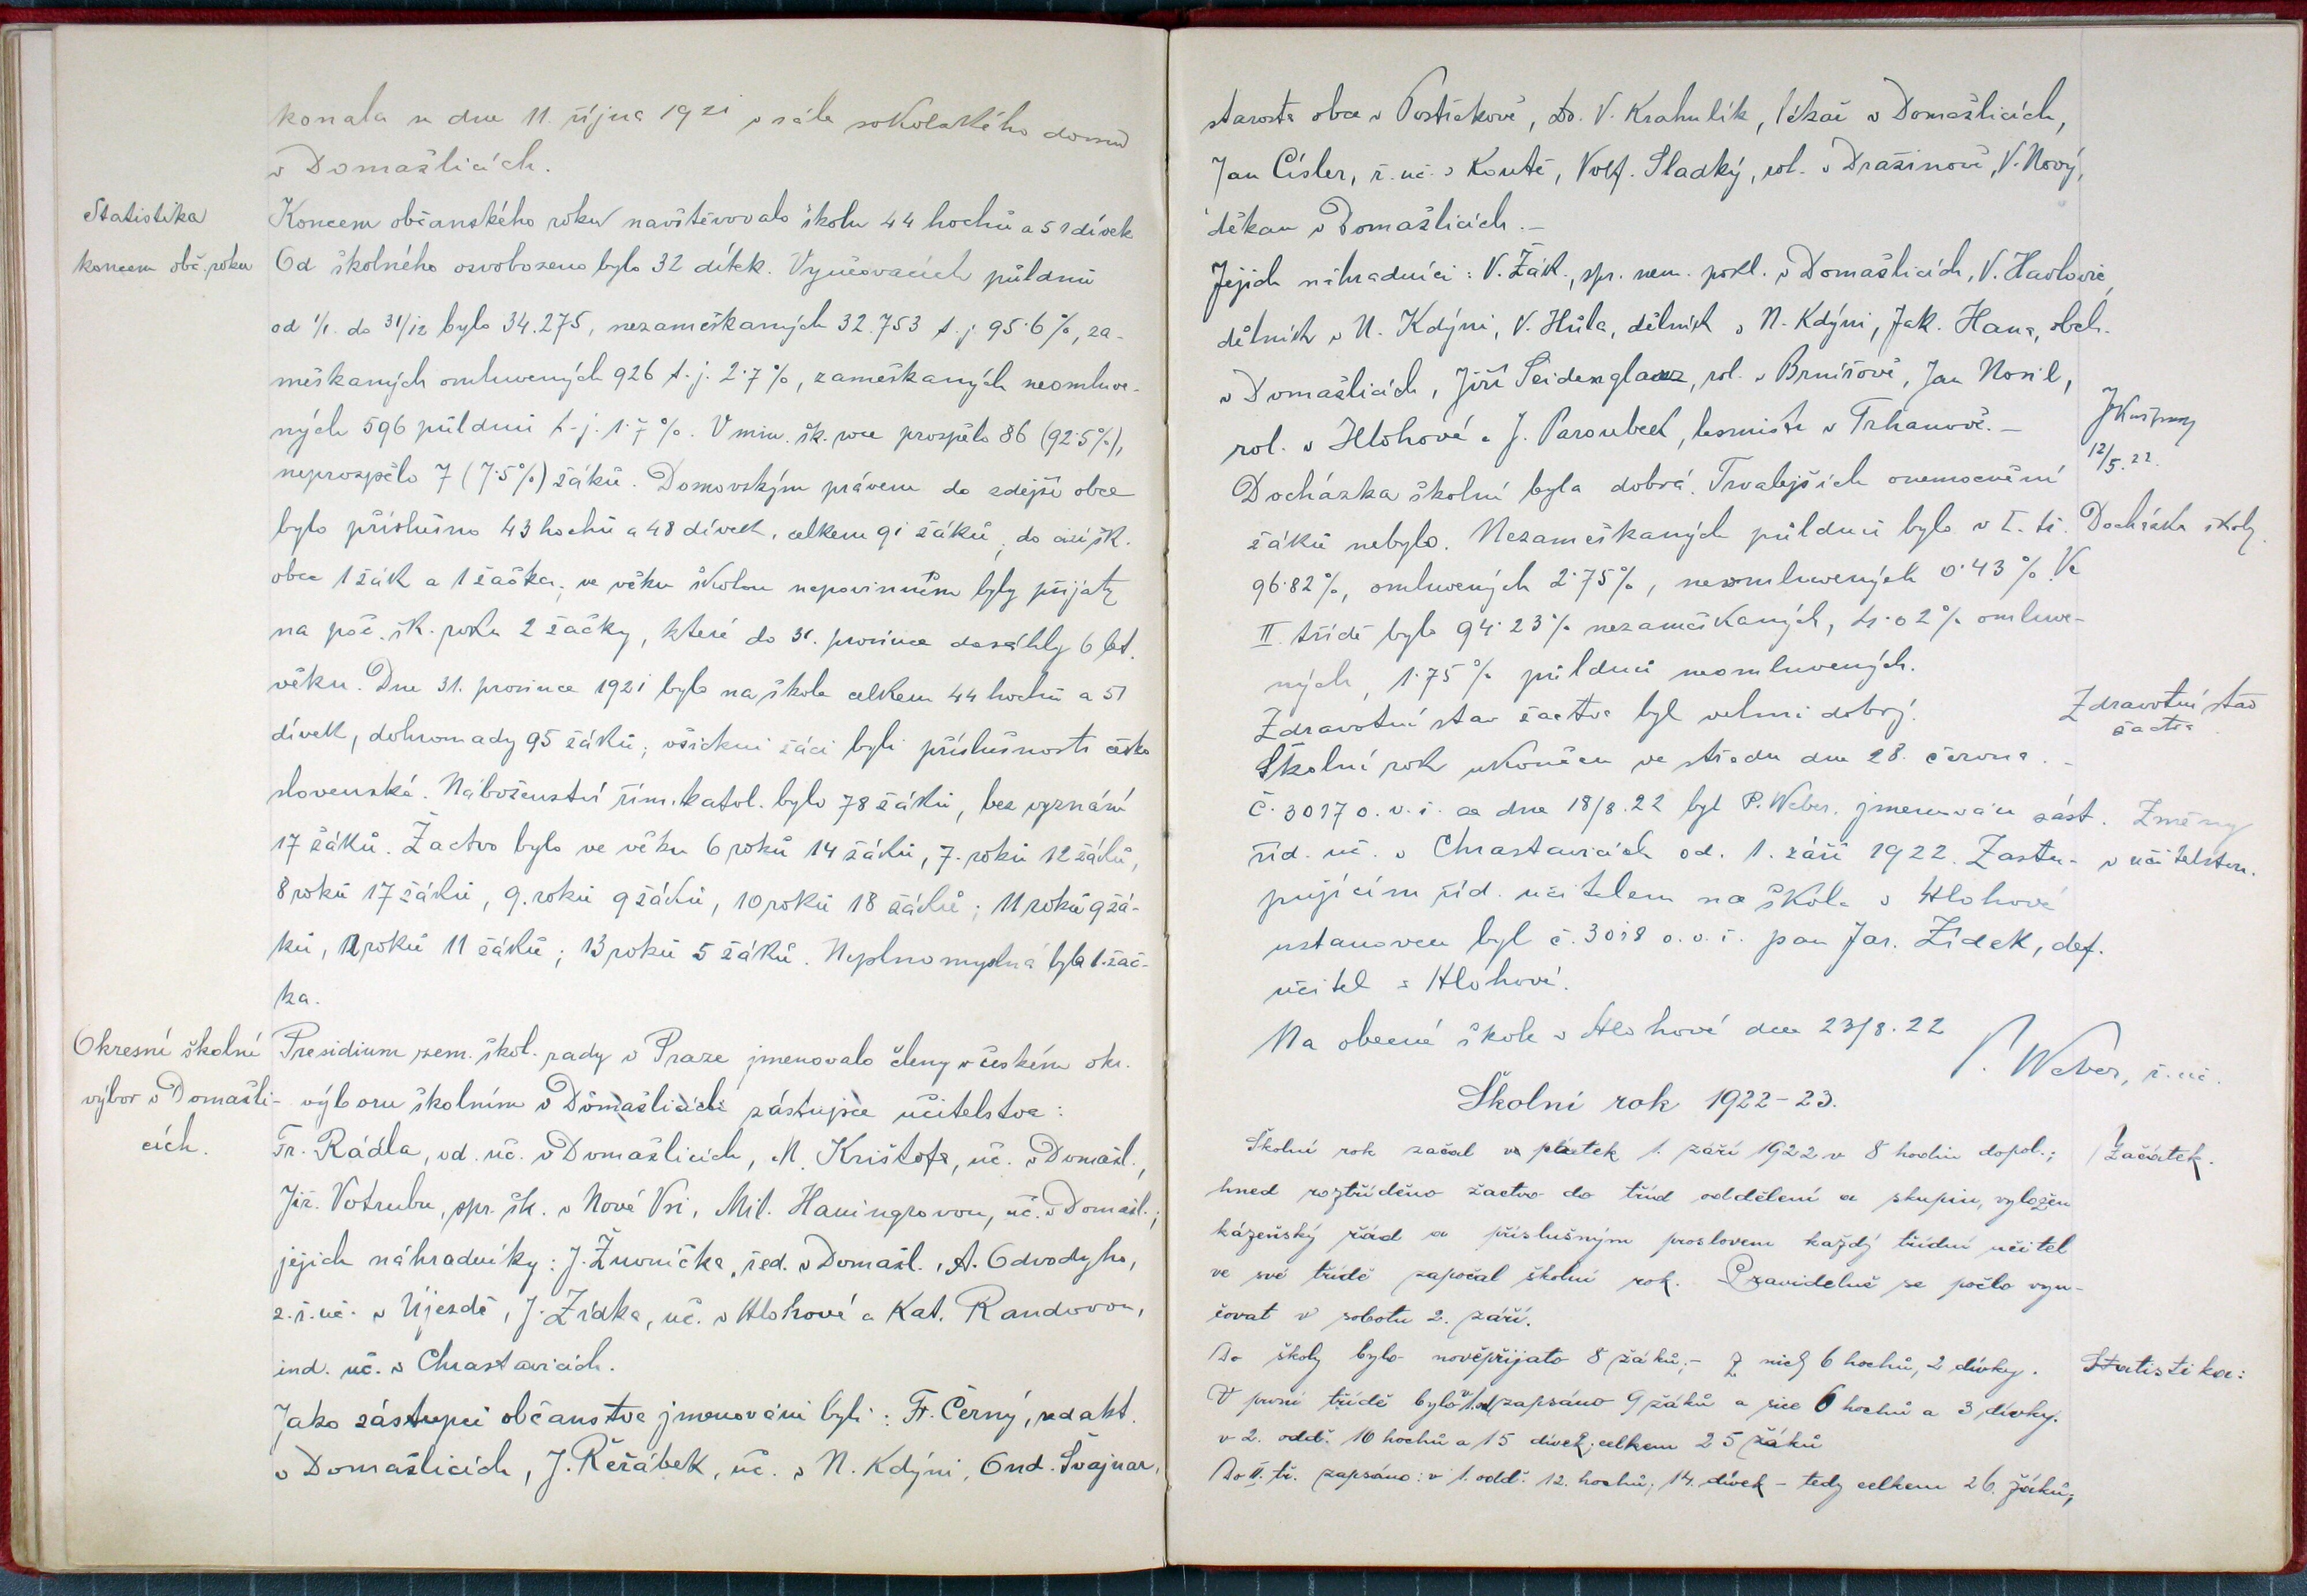 konala se dne 11. října 1921 v sále sokolského domu
v Domažlicích.
Statistika
koncem obč. roku
Koncem občanského roku navštěvovalo školu 44 hochů a 51 dívek
Od školného osvobozeno bylo 32 dítek. Vyučovacích půldnů
od 1/1. do 31/12 bylo 34.275, nezameškaných 32.753 t. j. 95·6%, za-
meškaných omluvených 926 t. j. 2·7%, zameškaných neomluve-
ných 596 půldnů t. j. 1·7%. V min. šk. roce prospělo 86 (92·5%),
neprospělo 7 (7·5%) žáků. Domovským právem do zdejší obce
bylo příslušno 43 hochů a 48 dívek, celkem 91 žáků, do cizí šk.
obce 1 žák a 1 žačka; ve věku školou nepovinném byly přijaty
na poč. šk. roku 2 žačky, které do 31. prosince dosáhly 6 let
věku. Dne 31. prosince 1921 bylo na škole celkem 44 hochů a 51
dívek, dohromady 95 žáků; všickni žáci byli příslušnosti česko
slovenské. Náboženství řím. katol. bylo 78 žáků, bez vyznání
17 žáků. Žactvo bylo ve věku 6 roků 14 žáků, 7. roků 12 žáků,
8 roků 17 žáků, 9. roků 9 žáků, 10 roků 18 žáků; 11 roků 9 žá-
ků, 12 roků 11 žáků; 13 roků 5 žáků. Neplnomyslná byla 1. žač-
ka.
Okresní školní
výbor v Domažli-
cích.
Presidium zem. škol. rady v Praze jmenovalo členy v českém okr.
výboru školním v Domažlicích zástupce učitelstva:
Fr. Rádla, od. uč. v Domažlicích, M. Krištofa, uč. v Domažl.,
Jiř. Votrubu, spr. šk. v Nové Vsi, Mil. Hauingrovou, uč. v Domažl.;
jejich náhradníky: J. Žwoníčka, řed. v Domažl., A. Odvodyho,
z. ř. uč. v Újezdě, J. Zídka, uč. v Hlohové a Kat. Randovou,
ind. uč. v Chrastavicích.
Jako zástupci občanstva jmenováni byli: Fr. Černý, redakt.
v Domažlicích, J. Řeřábek, uč. v N. Kdýni, Ond. Švajnar,
starosta obce v Postřekově, Dr. V. Krahulík, lékař v Domažlicích,
Jan Císler, ř. uč. v Koutě, Volf. Sladký, rol. v Dražinově, V. Nový,
děkan v Domažlicích. –
Jejich náhradníci: V. Žák, spr. nem. pokl. v Domažlicích, V. Havlovic,
dělník v N. Kdýni, V. Hůla, dělník v N. Kdýni, Jak. Hana, obch.
v Domažlicích, Jiří Seidenglanz, rol. v Brnířově, Jan Nosil,
rol. v Hlohové a J. Paroubek, lesmistr v Trhanově. –
12/5. 22.
Docházka školní byla dobrá. Trvalejších onemocnění
žáků nebylo. Nezameškaných půldnů bylo v I. tř.
Docházka školy.
96·82%, omluvených 2·75%, neomluvených 0·43%. Ve
II. třídě bylo 94·23% nezameškaných, 4·02% omluve-
ných, 1·75% půldnů neomluvených.
Zdravotní stav žactva byl velmi dobrý.
Zdravotní stav
žactva
Školní rok ukončen ve středu dne 28. června. –
č. 3017 o. v. š. ze dne 18/8. 22 byl P. Weber. jmenován zást.
Změny
říd. uč. v Chrastavicích od. 1. září 1922. Zastu-
v učitelstvu.
pujícím říd. učitelem na škole v Hlohové
ustanoven byl č. 3018 o. v. š. pan Jar. Zídek, def.
učitel v Hlohové.
Na obecné škole v Hlohové dne 23/8. 22
P. Weber, ř. uč.
Školní rok 1922–23.
Školní rok začal v pátek 1. září 1922 v 8 hodin dopol.;
Začátek.
hned roztříděno žactvo do tříd oddělení a skupin, vyložen
kázeňský řád a příslušným proslovem každý třídní učitel
ve své třídě započal školní rok. Pravidelně se počlo vyu-
čovat v sobotu 2. září.
Do školy bylo nověpřijato 8 žáků; – z nich 6 hochů, 2 dívky.
Statistika:
V první třídě bylo v 1. od. zapsáno 9 žáků a sice 6 hochů a 3 dívky.
v 2. odd. 10 hochů a 15 dívek; celkem 25 žáků
Do II. tř. zapsáno: v 1. odd. 12. hochů, 14. dívek – tedy celkem 26. žáků;